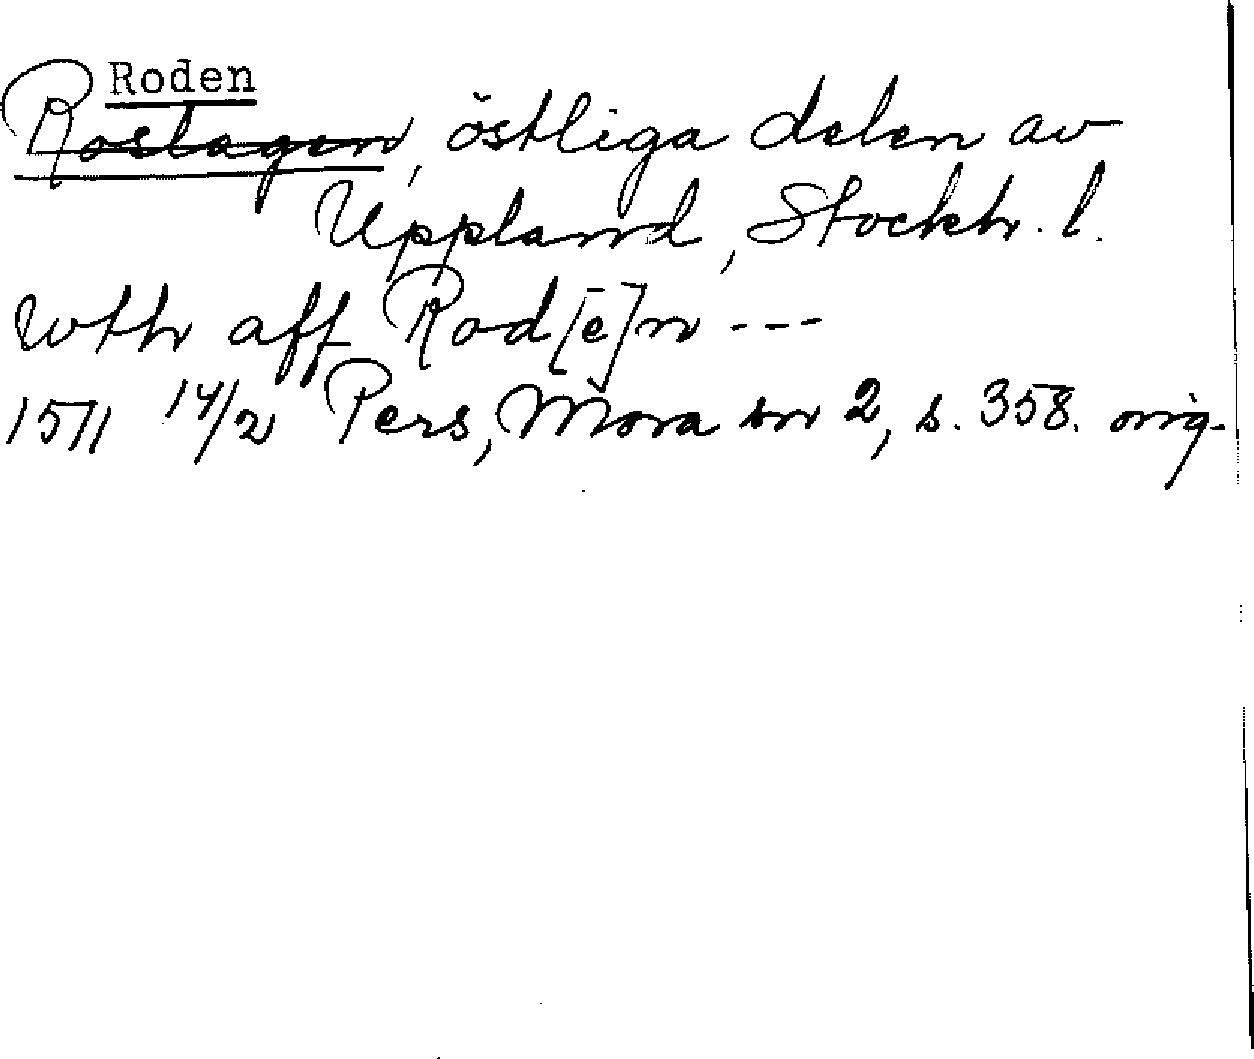 Roden
Roslagen, östliga delen av
Uppland, Stockh. l.
wthr aff Rod[e]n ---
1511 14/2 Pers, Mora sn 2, s. 358. orig.